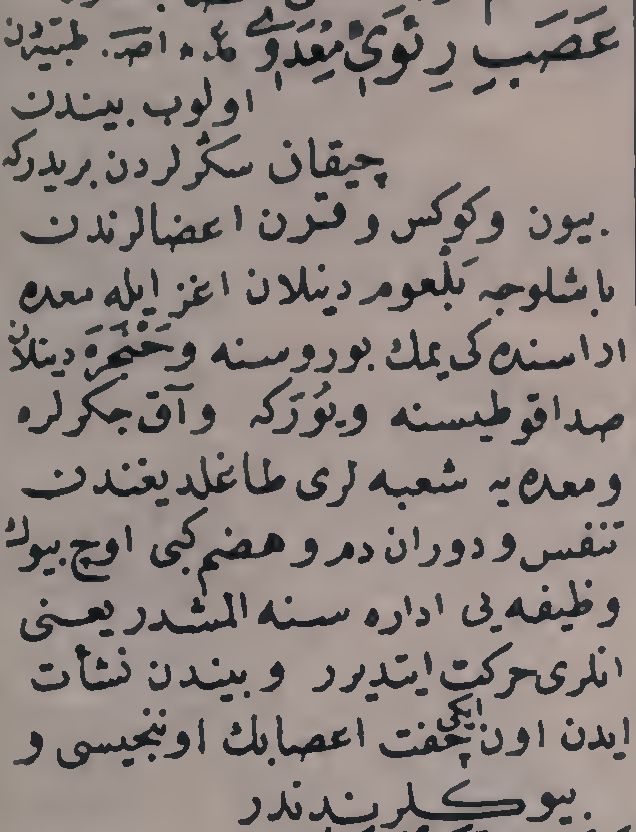 عَصَبِ رِئَوِیْ مِعَدَوِیْ طبیبدن
اولوب بیندن
چیقان سکرلردن بریدرکه
بیون وکوکس و قرن اعضالرندن
باشلوجه بَلْعوم دینلان اغز ایله معده
اراسنده کی یمك بوروسنه و حَنْجَرَه دینلان
صدا قوطیسنه ویُوَرَکه وآق جکرلره
ومعده یه شعبه لری طاغلدیغندن
تنفس و دوران دم و هضم کبی اوچ بیوك
وظیفه یی اداره سنه المشدر یعنی
انلری حرکت ایتدیرر و بیندن نشأت
ایدن اون ایکی جفت اعصابك اوننجیسی و
بیوکلرندندر